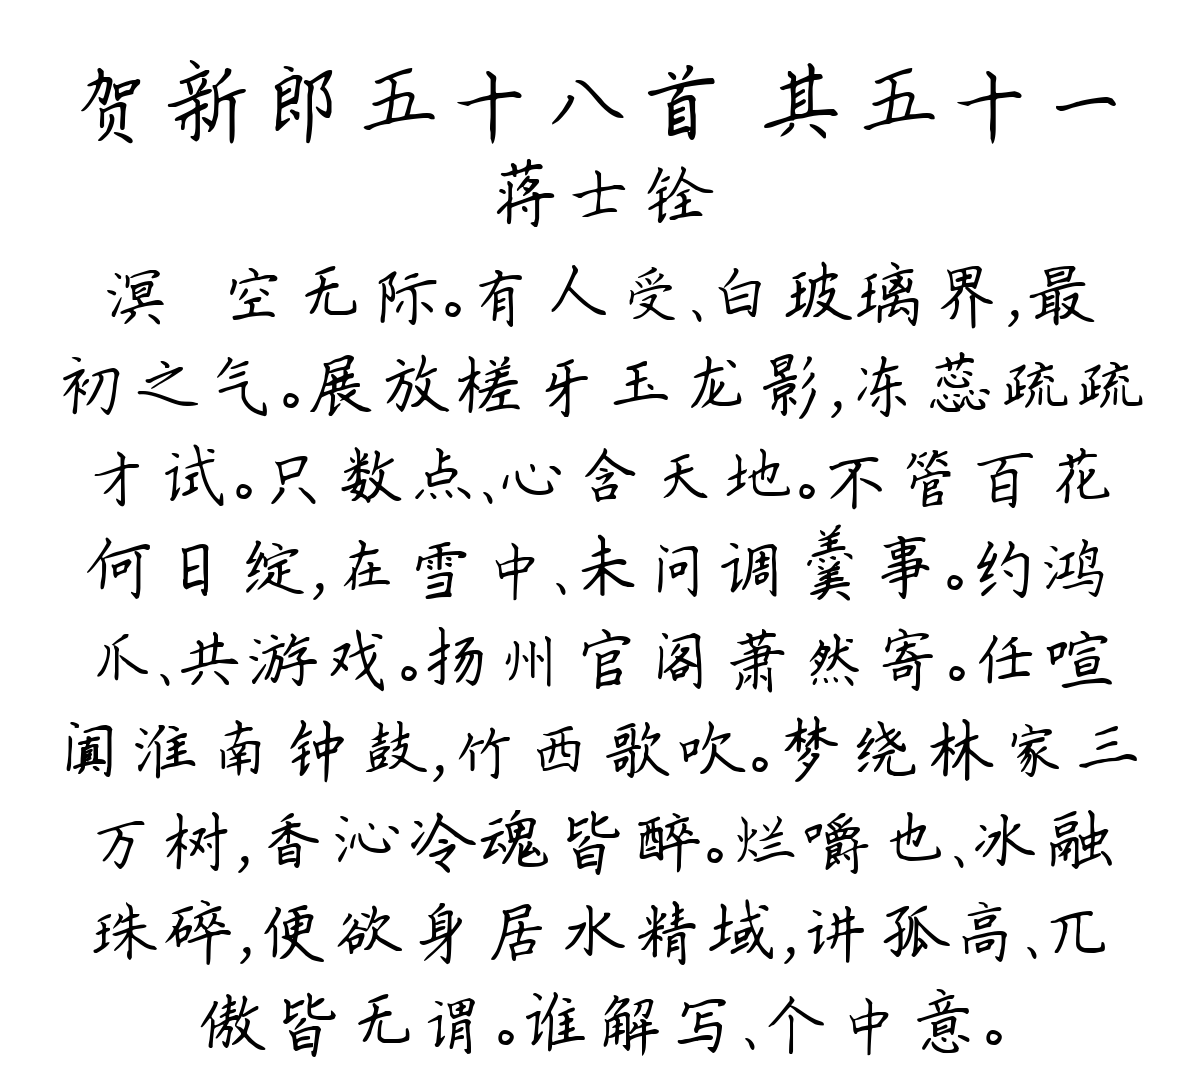 贺新郎五十八首 其五十一
蒋士铨
溟 空无际。有人受、白玻璃界,最
初之气。展放槎牙玉龙影,冻蕊疏疏
才试。只数点、心含天地。不管百花
何日绽,在雪中、未问调羹事。约鸿
爪、共游戏。扬州官阁萧然寄。任喧
阗淮南钟鼓,竹西歌吹。梦绕林家三
万树,香沁冷魂皆醉。烂嚼也、冰融
珠碎,便欲身居水精域,讲孤高、兀
傲皆无谓。谁解写、个中意。